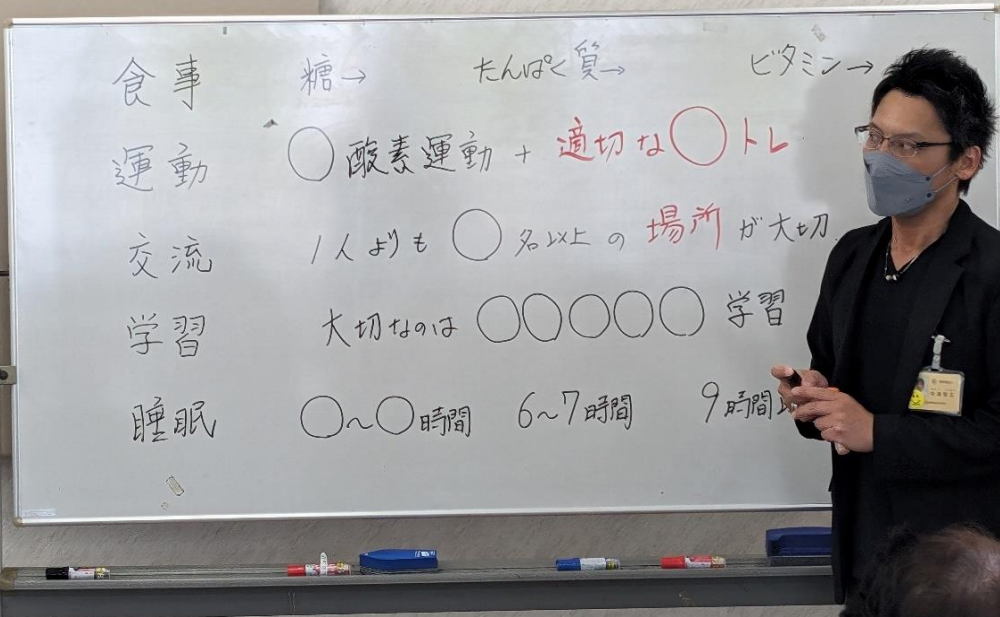 食事 糖→ たんぱく質→ ビタミン→
運動 ○酸素運動+適切な○トレ
交流 1人よりも○名以上の場所が大切
学習 大切なのは○○○○○学習
睡眠 ○〜○時間 6〜7時間 9時間